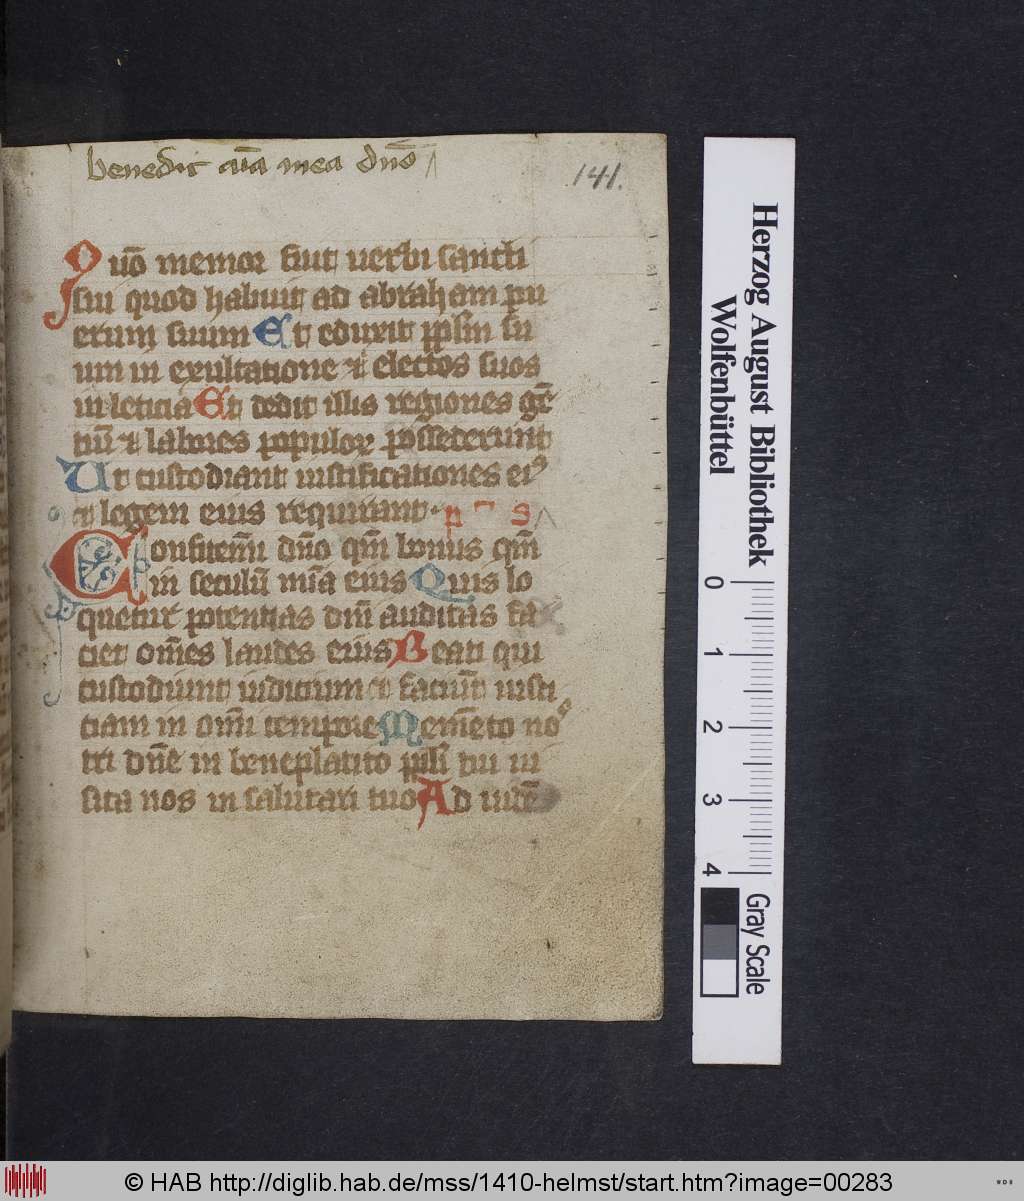 benedic aīa mea dn̄o
141.
Quō memor fuit uerbi sancti
sui quod habuit ad abraham pu
erum suum Et eduxit pp̄lm su
um in exultatione ⁊ electos suos
in leticia Et dedit illis regiones gē
tiū ⁊ labores populoꝝ possederunt
Ut custodiant iustificationes eiꝰ
et legem eius requirant · p s
Confitem̄i dn̄o qm̄ bonus qm̄
in seculū mīa eius Quis lo
quetur potentias dn̄i auditas fa
ciet om̄es laudes eius Beati qui
custodiunt iudicium et faciūt iusti
ciam in om̄i tempore Memēto no
tri dn̄e in beneplacito pp̄li tui ui
sita nos in salutari tuo Ad uidē
Herzog August Bibliothek
Wolfenbüttel
0 1 2 3 4
Gray Scale
© HAB http://diglib.hab.de/mss/1410-helmst/start.htm?image=00283